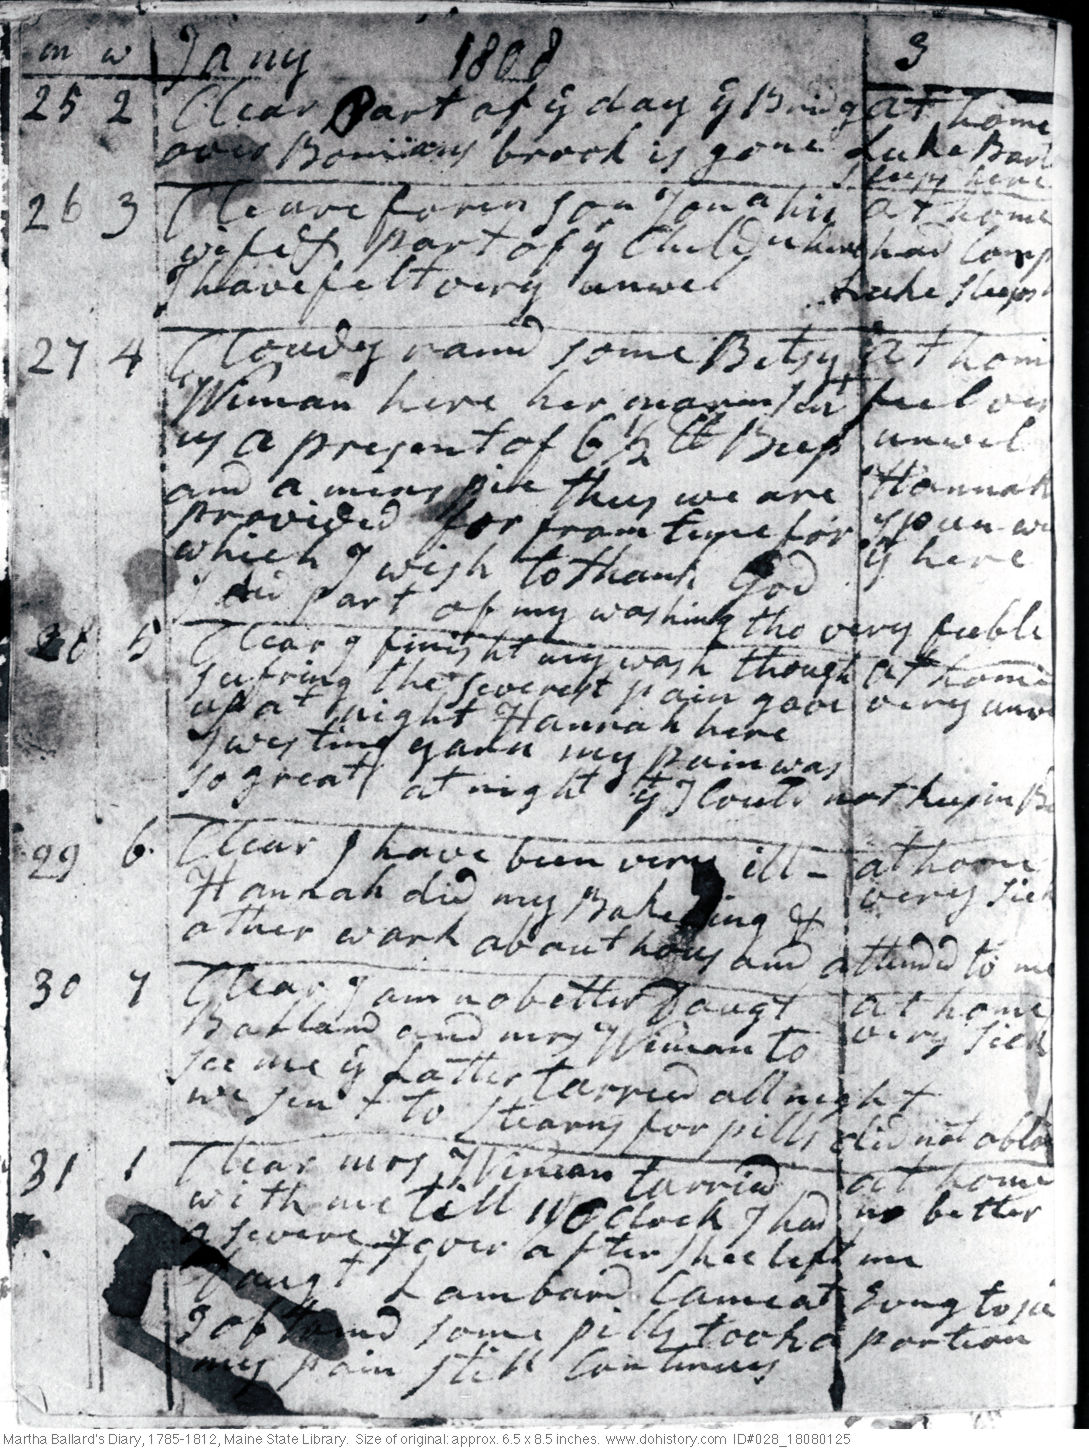 m w Jany 1808 3
25 2 Clear Part of ÿ day ÿ Bridg at home
over Bomans brook is gone Luke Bart
sleeps here
26 3 Cleare foren son Jonathis at home
wife & part of ÿ Children here had Comp
I have felt very unwel Luke Sleeps
27 4 Cloudy raind some Betsy at home
Wiman here her marm sent feel very
us a present of 6 ½ lb Beef unwel
and a mins pie thus we are Hannah
provided for from time for spun wo
which I wish to thank God ÿ here
I did part of my washing tho very feeble
28 5 Clear I finisht my wash though at home
sufring the severest pain gave very unwe
up at night Hannah here
twisting yarn my pain was
so great at night ÿ I Could not keep in Be
29 6 Clear I have been very ill - at home
Hannah did my Bakeing & very sick
other work about hous and attended to me
30 7 Clear I am no better Daugt at home
Ballard and mrs Wiman to very sick
see me ÿ Latter tarried all night
we sent to Stearns for pills did not obta
31 1 Clear mrs Wiman tarried at home
with me till 11 O Clock I had no better
a severe fever after shee left me
Daugt Lambard Came at Evng to see
I obtaind some pills took a portion
my pain still Continues
Martha Ballard's Diary, 1785-1812, Maine State Library. Size of original: approx. 6.5 x 8.5 inches. www.dohistory.com ID#028_18080125